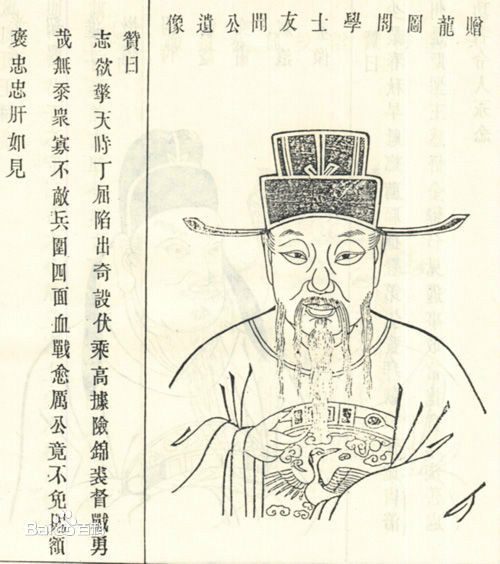 贈龍圖閣學士友聞公遺像
贊曰
志欲擎天時丁屈陷出奇設伏乘高據險錦裘督戰勇
哉無忝衆寡不敵兵圍四面血戰愈厲公竟不免以額
褒忠忠肝如見
Bai百科